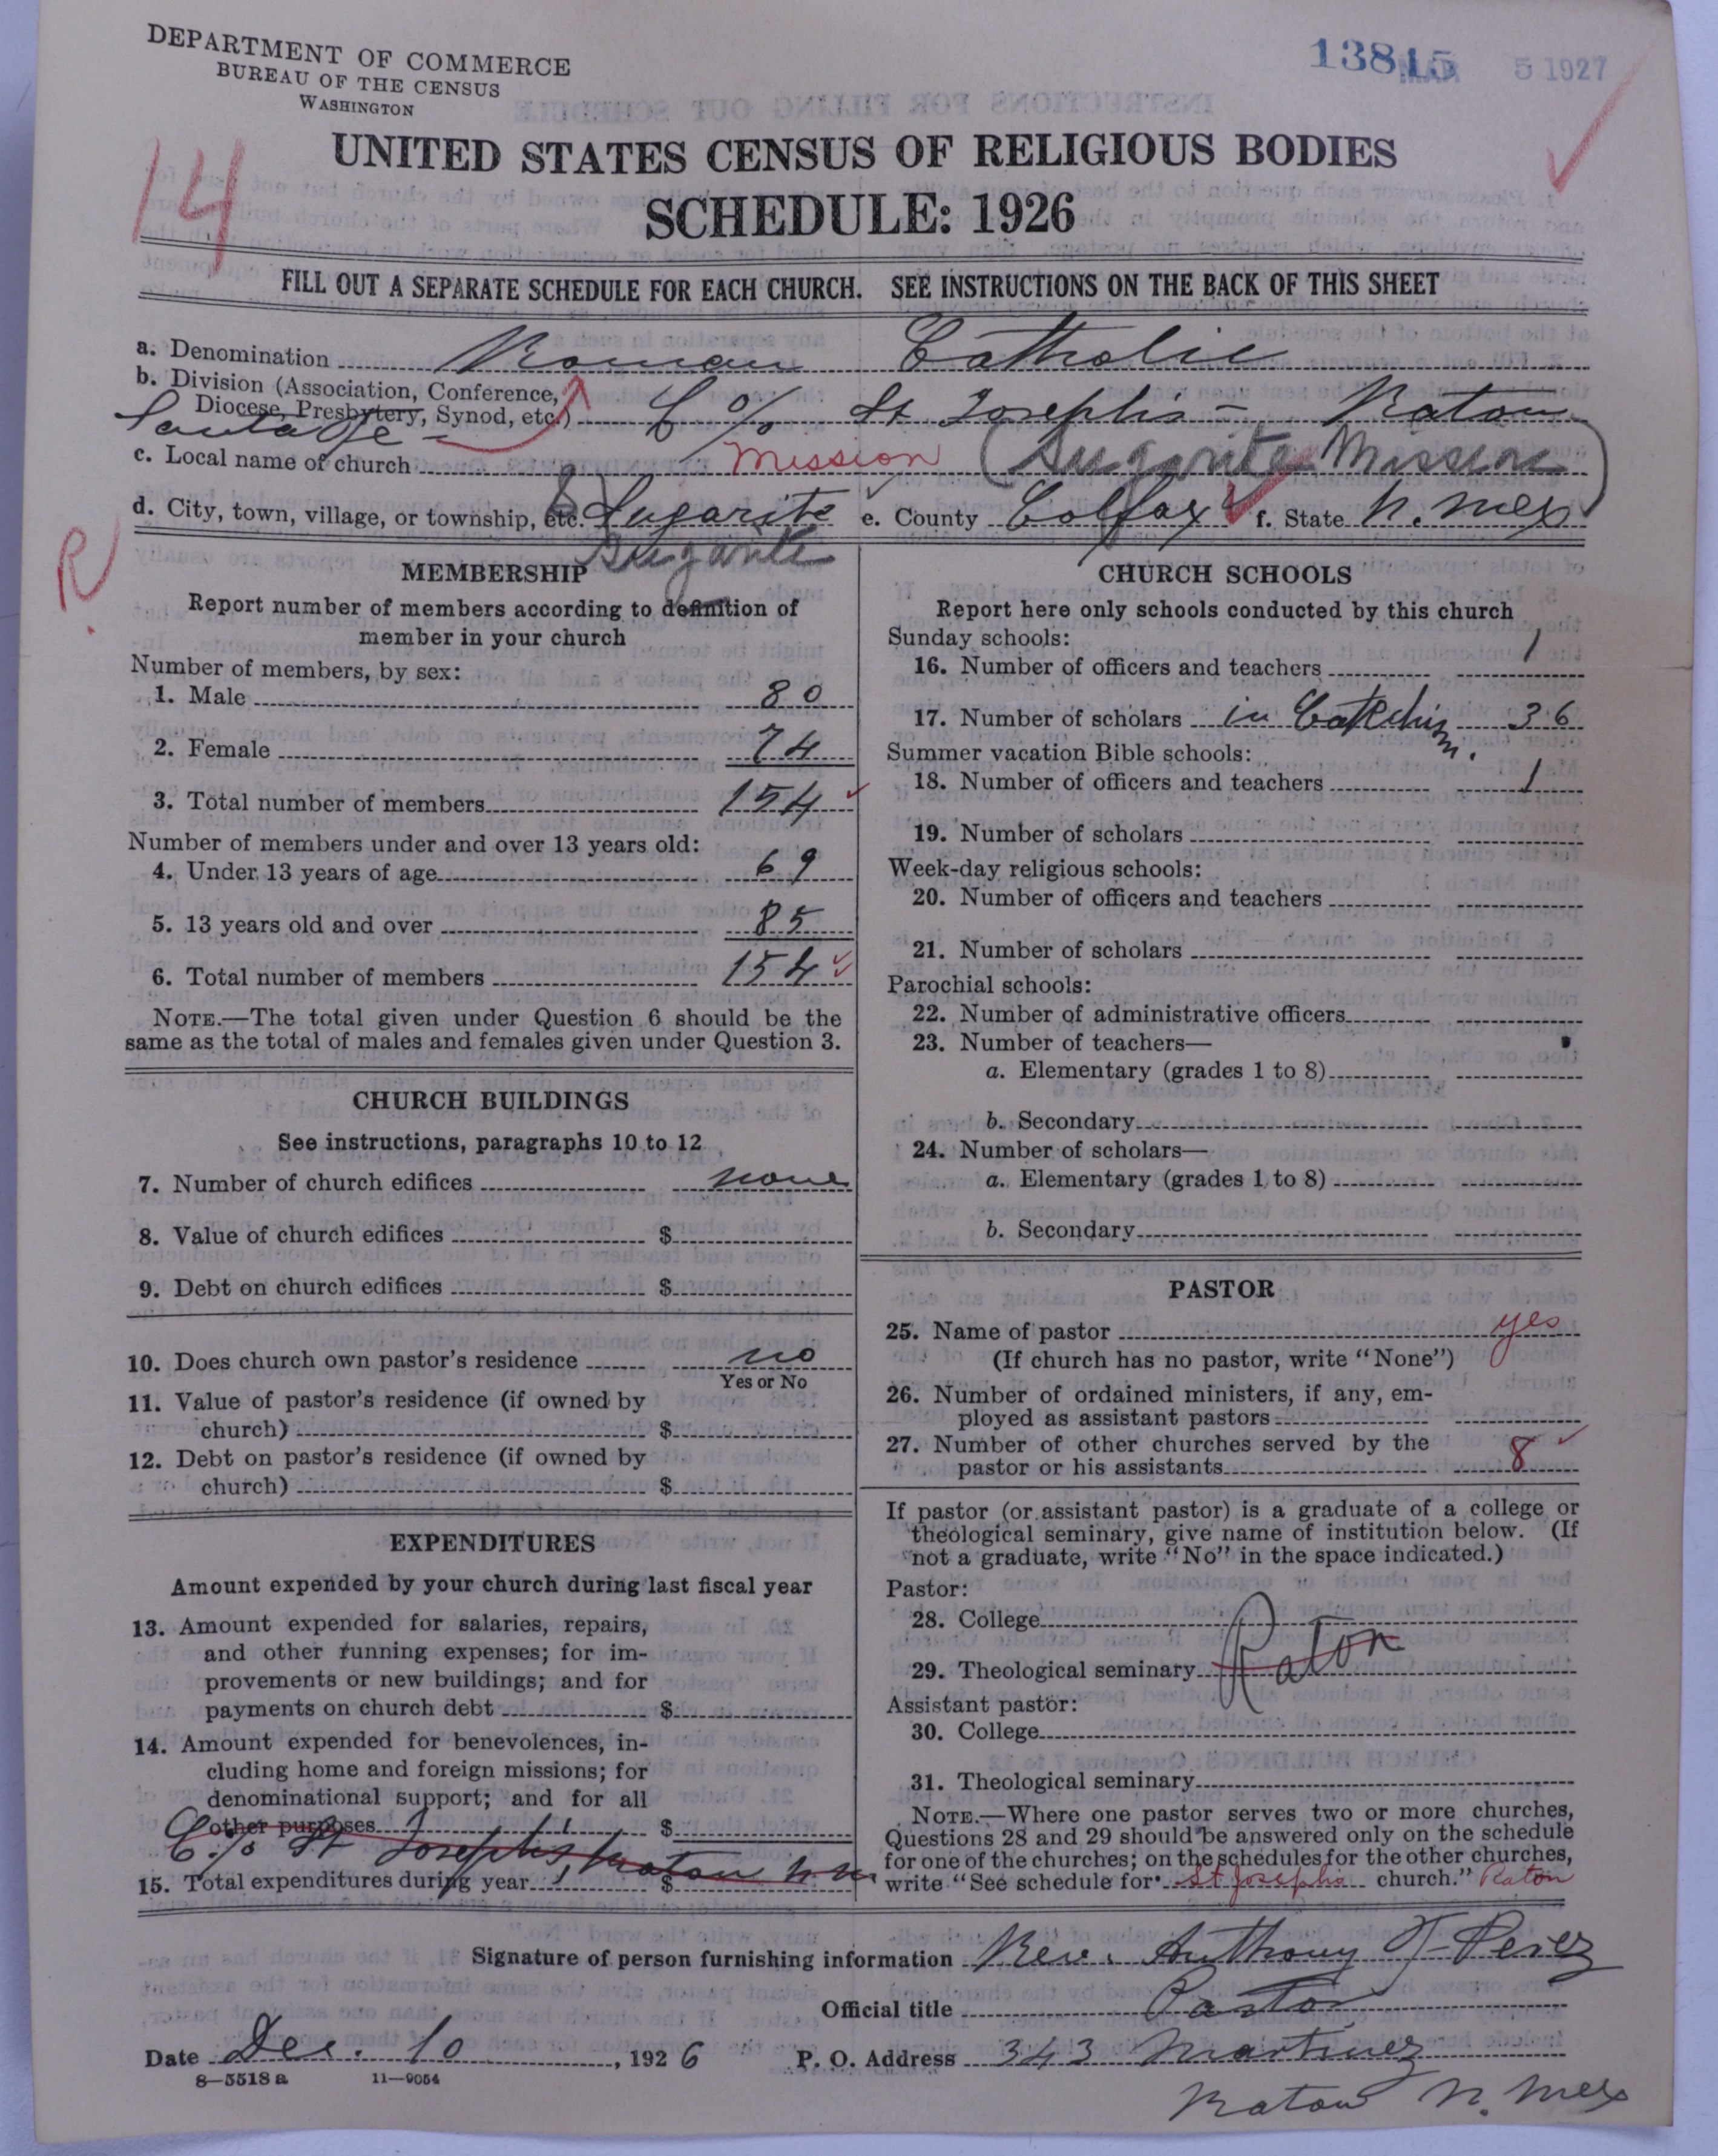 DEPARTMENT OF COMMERCE
BUREAU OF THE CENSUS
WASHINGTON
13815 MAR 5 1927
14
UNITED STATES CENSUS OF RELIGIOUS BODIES
SCHEDULE: 1926
FILL OUT A SEPARATE SCHEDULE FOR EACH CHURCH. SEE INSTRUCTIONS ON THE BACK OF THIS SHEET
a. Denomination Roman Catholic
b. Division (Association, Conference,
Diocese, Presbytery, Synod, etc.) C/o St Josephs - Raton
Santa Fe -
c. Local name of church Mission (Sugarite Mission)
d. City, town, village, or township, etc. Sugarite e. County Colfax f. State N. Mex
Sugarite
R
MEMBERSHIP
Report number of members according to definition of
member in your church
Number of members, by sex:
1. Male 80
2. Female 74
3. Total number of members 154
Number of members under and over 13 years old:
4. Under 13 years of age 69
5. 13 years old and over 85
6. Total number of members 154
NOTE.—The total given under Question 6 should be the
same as the total of males and females given under Question 3.
CHURCH BUILDINGS
See instructions, paragraphs 10 to 12
7. Number of church edifices none
8. Value of church edifices $
9. Debt on church edifices $
10. Does church own pastor's residence no
Yes or No
11. Value of pastor's residence (if owned by
church) $
12. Debt on pastor's residence (if owned by
church) $
EXPENDITURES
Amount expended by your church during last fiscal year
13. Amount expended for salaries, repairs,
and other running expenses; for im-
provements or new buildings; and for
payments on church debt $
14. Amount expended for benevolences, in-
cluding home and foreign missions; for
denominational support; and for all
other purposes $
C/o St Josephs, Raton N M
15. Total expenditures during year $
CHURCH SCHOOLS
Report here only schools conducted by this church
Sunday schools:
16. Number of officers and teachers 1
17. Number of scholars in Catechism. 36
Summer vacation Bible schools:
18. Number of officers and teachers 1
19. Number of scholars
Week-day religious schools:
20. Number of officers and teachers
21. Number of scholars
Parochial schools:
22. Number of administrative officers
23. Number of teachers—
a. Elementary (grades 1 to 8)
b. Secondary
24. Number of scholars—
a. Elementary (grades 1 to 8)
b. Secondary
PASTOR
25. Name of pastor yes
(If church has no pastor, write "None")
26. Number of ordained ministers, if any, em-
ployed as assistant pastors
27. Number of other churches served by the
pastor or his assistants 8
If pastor (or assistant pastor) is a graduate of a college or
theological seminary, give name of institution below. (If
not a graduate, write "No" in the space indicated.)
Pastor:
28. College
29. Theological seminary Raton
Assistant pastor:
30. College
31. Theological seminary
NOTE.—Where one pastor serves two or more churches,
Questions 28 and 29 should be answered only on the schedule
for one of the churches; on the schedules for the other churches,
write "See schedule for St Josephs church." Raton
Signature of person furnishing information Rev. Anthony T- Perez
Official title Pastor
Date Dec. 10, 1926 P. O. Address 343 Martinez
8—5518 a 11—9054
Raton N. Mex